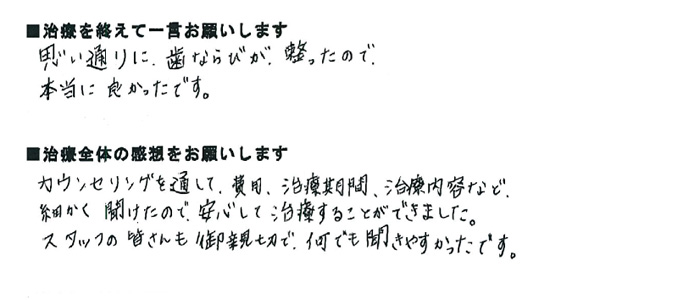 ■治療を終えて一言お願いします
思い通りに、歯ならびが、整ったので、
本当に良かったです。
■治療全体の感想をお願いします
カウンセリングを通して、費用、治療期間、治療内容など、
細かく聞けたので、安心して治療することができました。
スタッフの皆さんも御親切で、何でも聞きやすかったです。